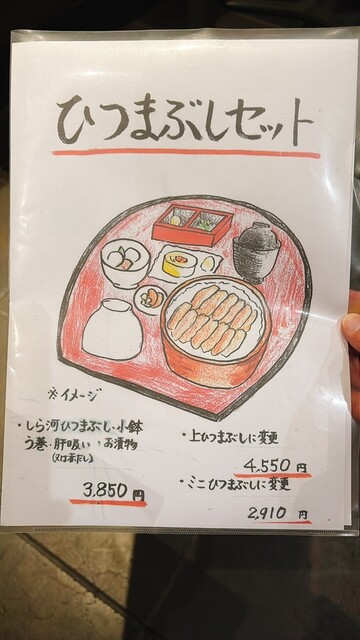 ひつまぶしセット
※イメージ
・しら河ひつまぶし・小鉢
う巻・肝吸い・お漬物
(又は赤だし)
3,850円
・上ひつまぶしに変更
4,550円
・ミニひつまぶしに変更
2,910円